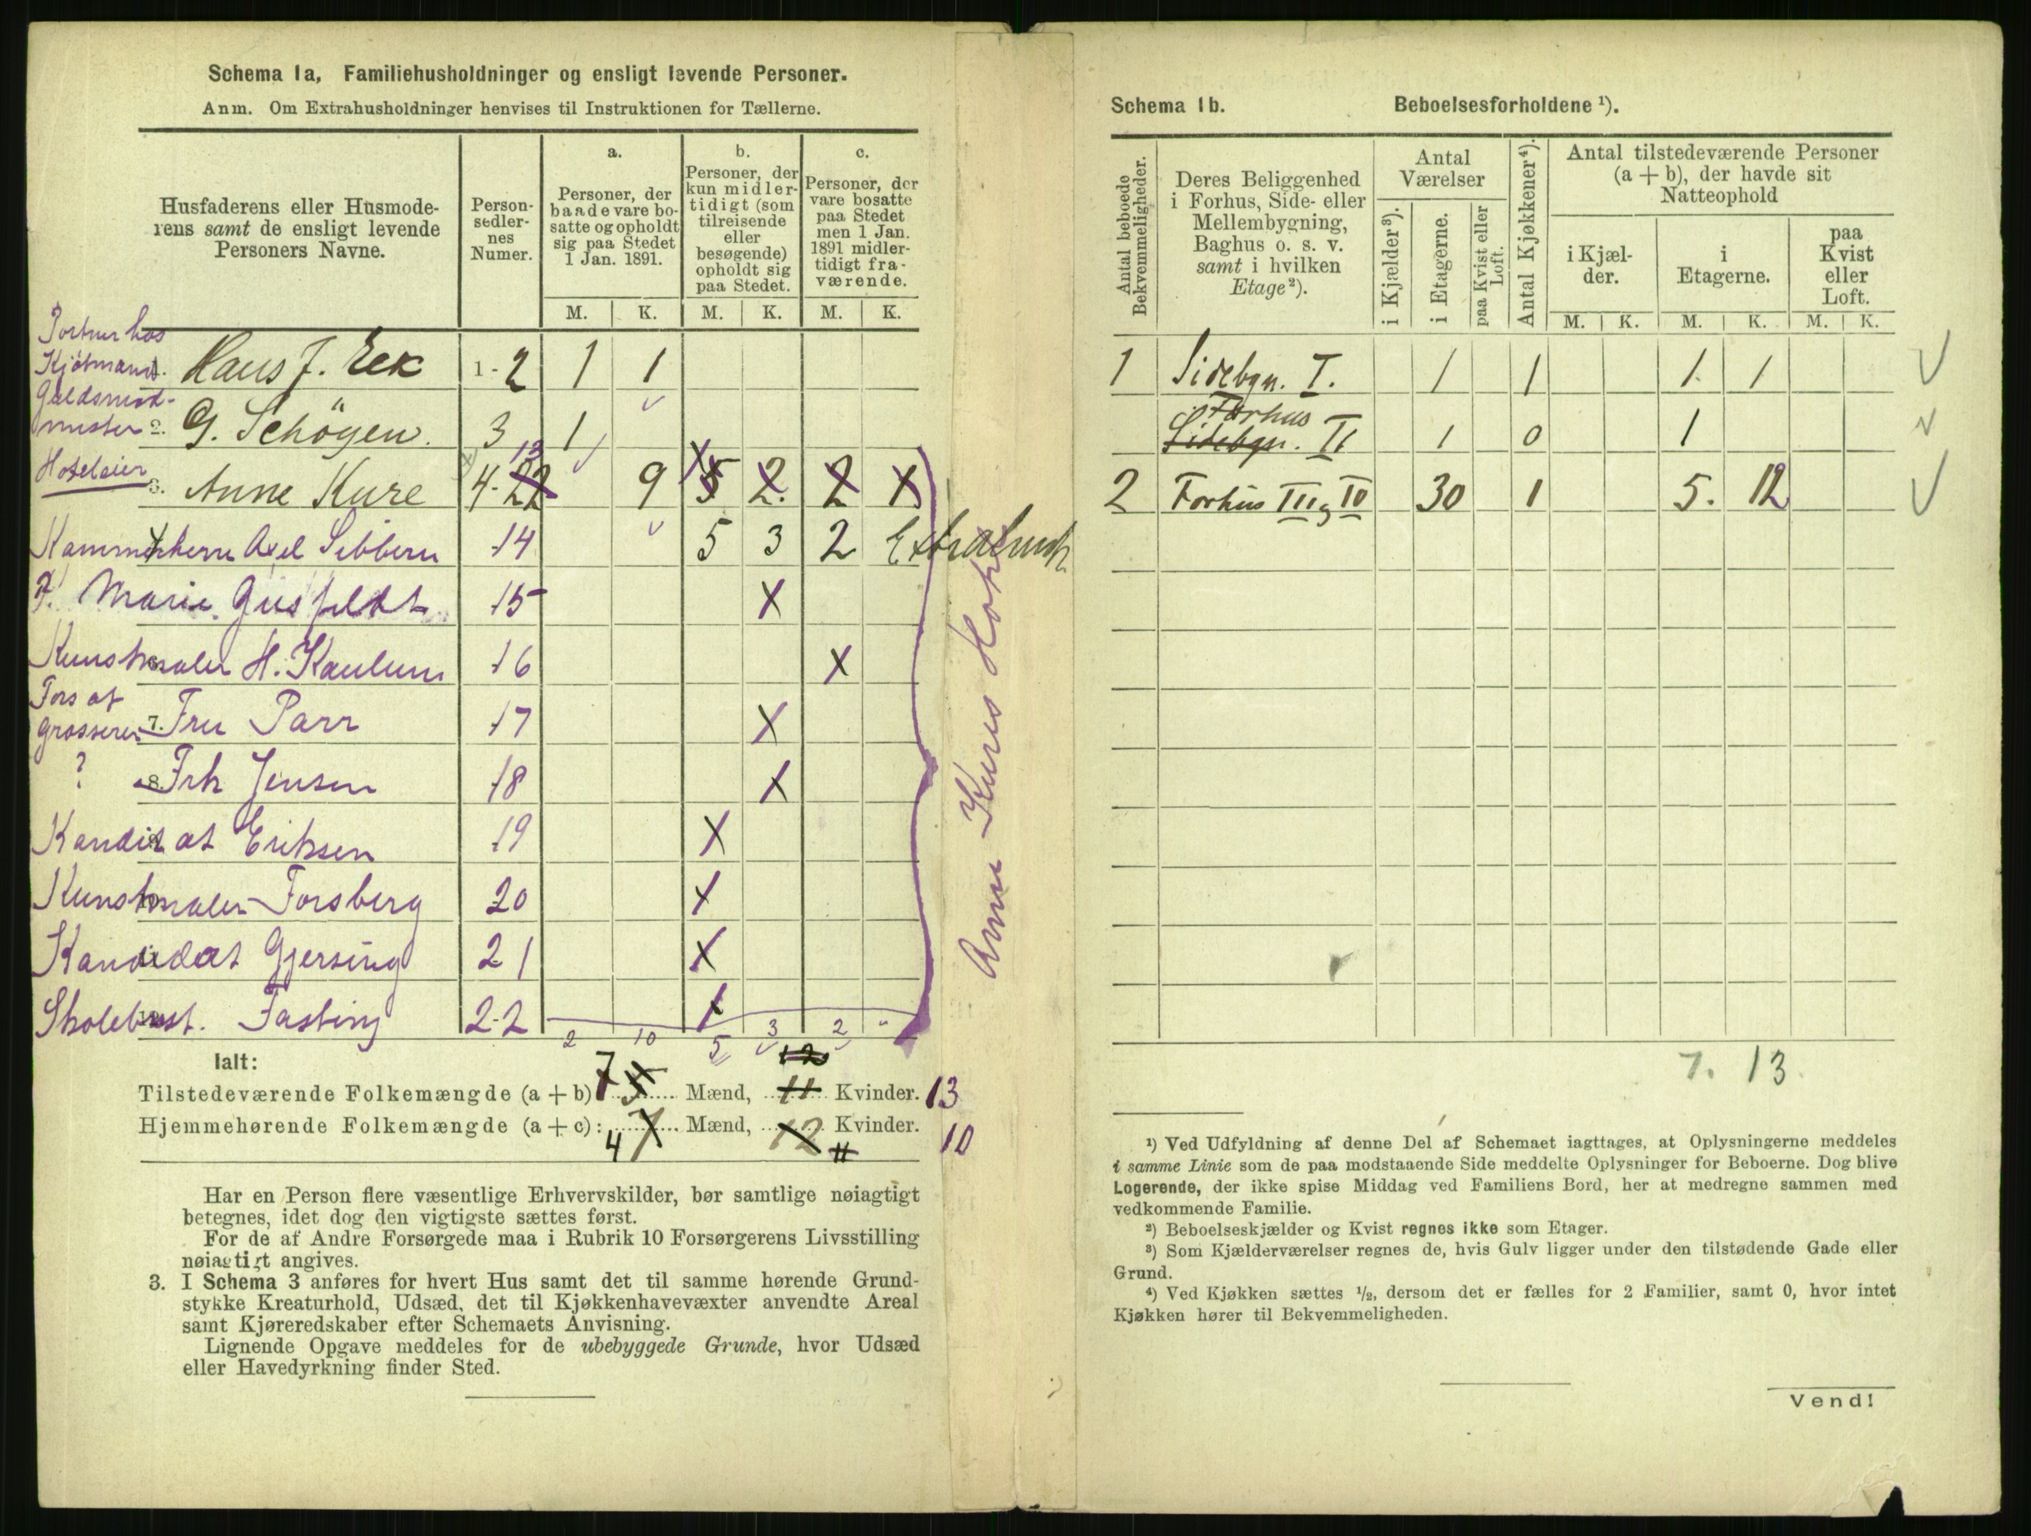 Schema 1a, Familiehusholdninger og ensligt levende Personer.
Anm. Om Extrahusholdninger henvises til Instruktionen for Tællerne.
Husfaderens eller Husmode-
rens samt de ensligt levende
Personers Navne.
Person-
sedler-
nes
Numer.
a.
Personer, der
baade vare bo-
satte og opholdt
sig paa Stedet
1 Jan. 1891.
b.
Personer, der
kun midler-
tidigt (som
tilreisende
eller
besøgende)
opholdt sig
paa Stedet.
c.
Personer, der
vare bosatte
paa Stedet
men 1 Jan.
1891 midler-
tidigt fra-
værende.
M. K. M. K. M. K.
Portner hos
Kjøtmand. Hans J. Eek 1-2 1 1
Guldsmed-
mester 2. G. Schøyen. 3 1
Hoteleier 3. Anne Kure 4-22 13 9 5 2. 2 X
Kammerherre Axel Sibbern 14 5 3 2 Extrahush
F. Marie Gusfeldt 15 X
Kunstmaler H. Kaulum 16 X
Fors at
Grosserer 7. Fru Parr 17 X
? 8. Frk Jensen 18 X
Kandidat Eriksen 19 X
Kunstmaler Forsberg 20 X
Kandidat Gjersing 21 X
Skolebest. Fasting 2-2 X
2 10 5 3 2 "
Anne Kures Hotel
Ialt:
12
Tilstedeværende Folkemængde (a + b) 7 5 Mænd, 11 Kvinder. 13
Hjemmehørende Folkemængde (a + c): 4 7 Mænd, 12 11 Kvinder. 10
Har en Person flere væsentlige Erhvervskilder, bør samtlige nøiagtigt
betegnes, idet dog den vigtigste sættes først.
For de af Andre Forsørgede maa i Rubrik 10 Forsørgerens Livsstilling
nøiagtigt angives.
3. I Schema 3 anføres for hvert Hus samt det til samme hørende Grund-
stykke Kreaturhold, Udsæd, det til Kjøkkenhavevæxter anvendte Areal
samt Kjøreredskaber efter Schemaets Anvisning.
Lignende Opgave meddeles for de ubebyggede Grunde, hvor Udsæd
eller Havedyrkning finder Sted.
Schema 1b. Beboelsesforholdene ¹).
Antal beboede
Bekvemmeligheder.
Deres Beliggenhed
i Forhus, Side- eller
Mellembygning,
Baghus o. s. v.
samt i hvilken
Etage²).
Antal
Værelser
i Kjælder³).
i Etagerne.
paa Kvist eller
Loft.
Antal Kjøkkener⁴).
Antal tilstedeværende Personer
(a + b), der havde sit
Natteophold
i Kjæl-
der.
i
Etagerne.
paa
Kvist
eller
Loft.
M. K. M. K. M. K.
1 Sidebgn. I. 1 1 1. 1
Forhus
Sidebgn. II 1 0 1
2 Forhus III og IV 30 1 5. 12
7. 13.
¹) Ved Udfyldning af denne Del af Schemaet iagttages, at Oplysningerne meddeles
i samme Linie som de paa modstaaende Side meddelte Oplysninger for Beboerne. Dog blive
Logerende, der ikke spise Middag ved Familiens Bord, her at medregne sammen med
vedkommende Familie.
²) Beboelseskjælder og Kvist regnes ikke som Etager.
³) Som Kjælderværelser regnes de, hvis Gulv ligger under den tilstødende Gade eller
Grund.
⁴) Ved Kjøkken sættes ½, dersom det er fælles for 2 Familier, samt 0, hvor intet
Kjøkken hører til Bekvemmeligheden.
Vend!